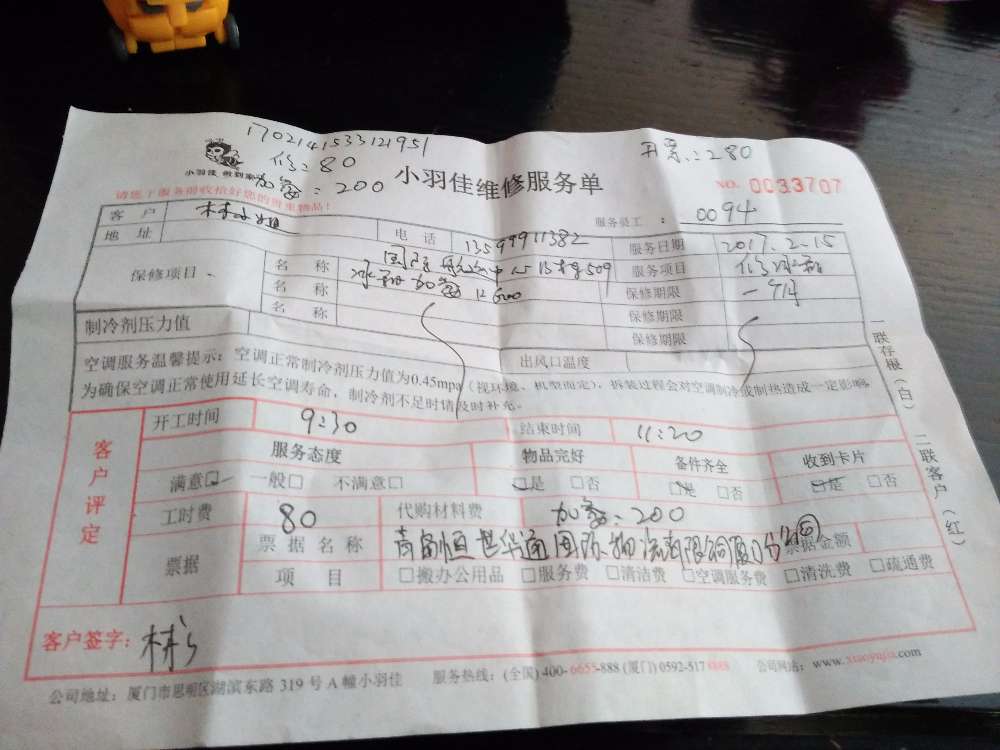 1702141533121951
修:80
开票:280
小羽佳 做到家
加氟:200
小羽佳维修服务单
NO. 0033707
请您于服务前收拾好您的贵重物品!
客户 林小姐 电话 13599911382 服务员工: 0094
地址 服务日期 2017.2.15
保修项目 名称 国际 中心 509 服务项目 修冰箱
名称 冰箱加氟 保修期限 一个月
名称 保修期限
制冷剂压力值 保修期限
空调服务温馨提示:空调正常制冷剂压力值为0.45mpa(视环境、机型而定),拆装过程会对空调制冷或制热造成一定影响,
出风口温度
为确保空调正常使用延长空调寿命,制冷剂不足时请及时补充。
一联存根(白) 二联客户(红)
客户评定
开工时间 9:30 结束时间 11:20
服务态度 物品完好 备件齐全 收到卡片
满意□ 一般□ 不满意□ □是 □否 □是 □否 □是 □否
工时费 80 代购材料费 加氟:200
票据 票据名称 票据金额
项目 □搬办公用品 □服务费 □清洁费 □空调服务费 □清洗费 □疏通费
客户签字: 林
公司地址:厦门市思明区湖滨东路 319 号 A 幢小羽佳 服务热线:(全国)400-6655-888 (厦门) 0592-517 公司网站:www.xiaoyujia.com